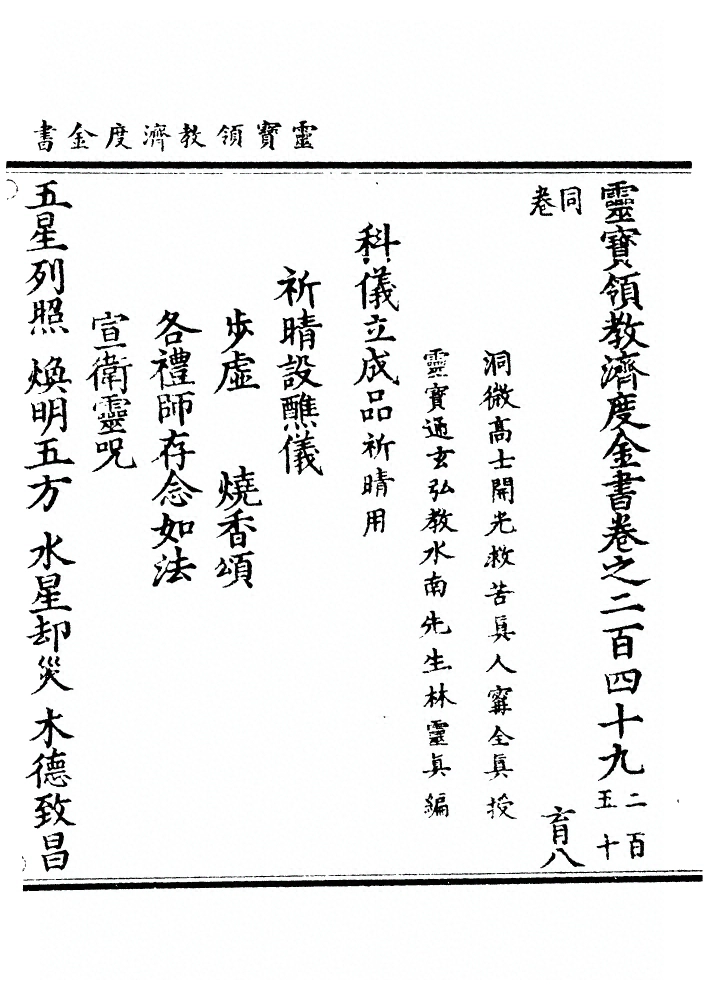 靈寶領教濟度金書
靈寶領教濟度金書卷之二百四十九 二百五十
同卷
育八
洞微高士開光救苦真人寗全真授
靈寶通玄弘教水南先生林靈真編
科儀立成品祈晴用
祈晴設醮儀
步虛 燒香頌
各禮師存念如法
宣衛靈呪
五星列照 煥明五方 水星却災 木德致昌